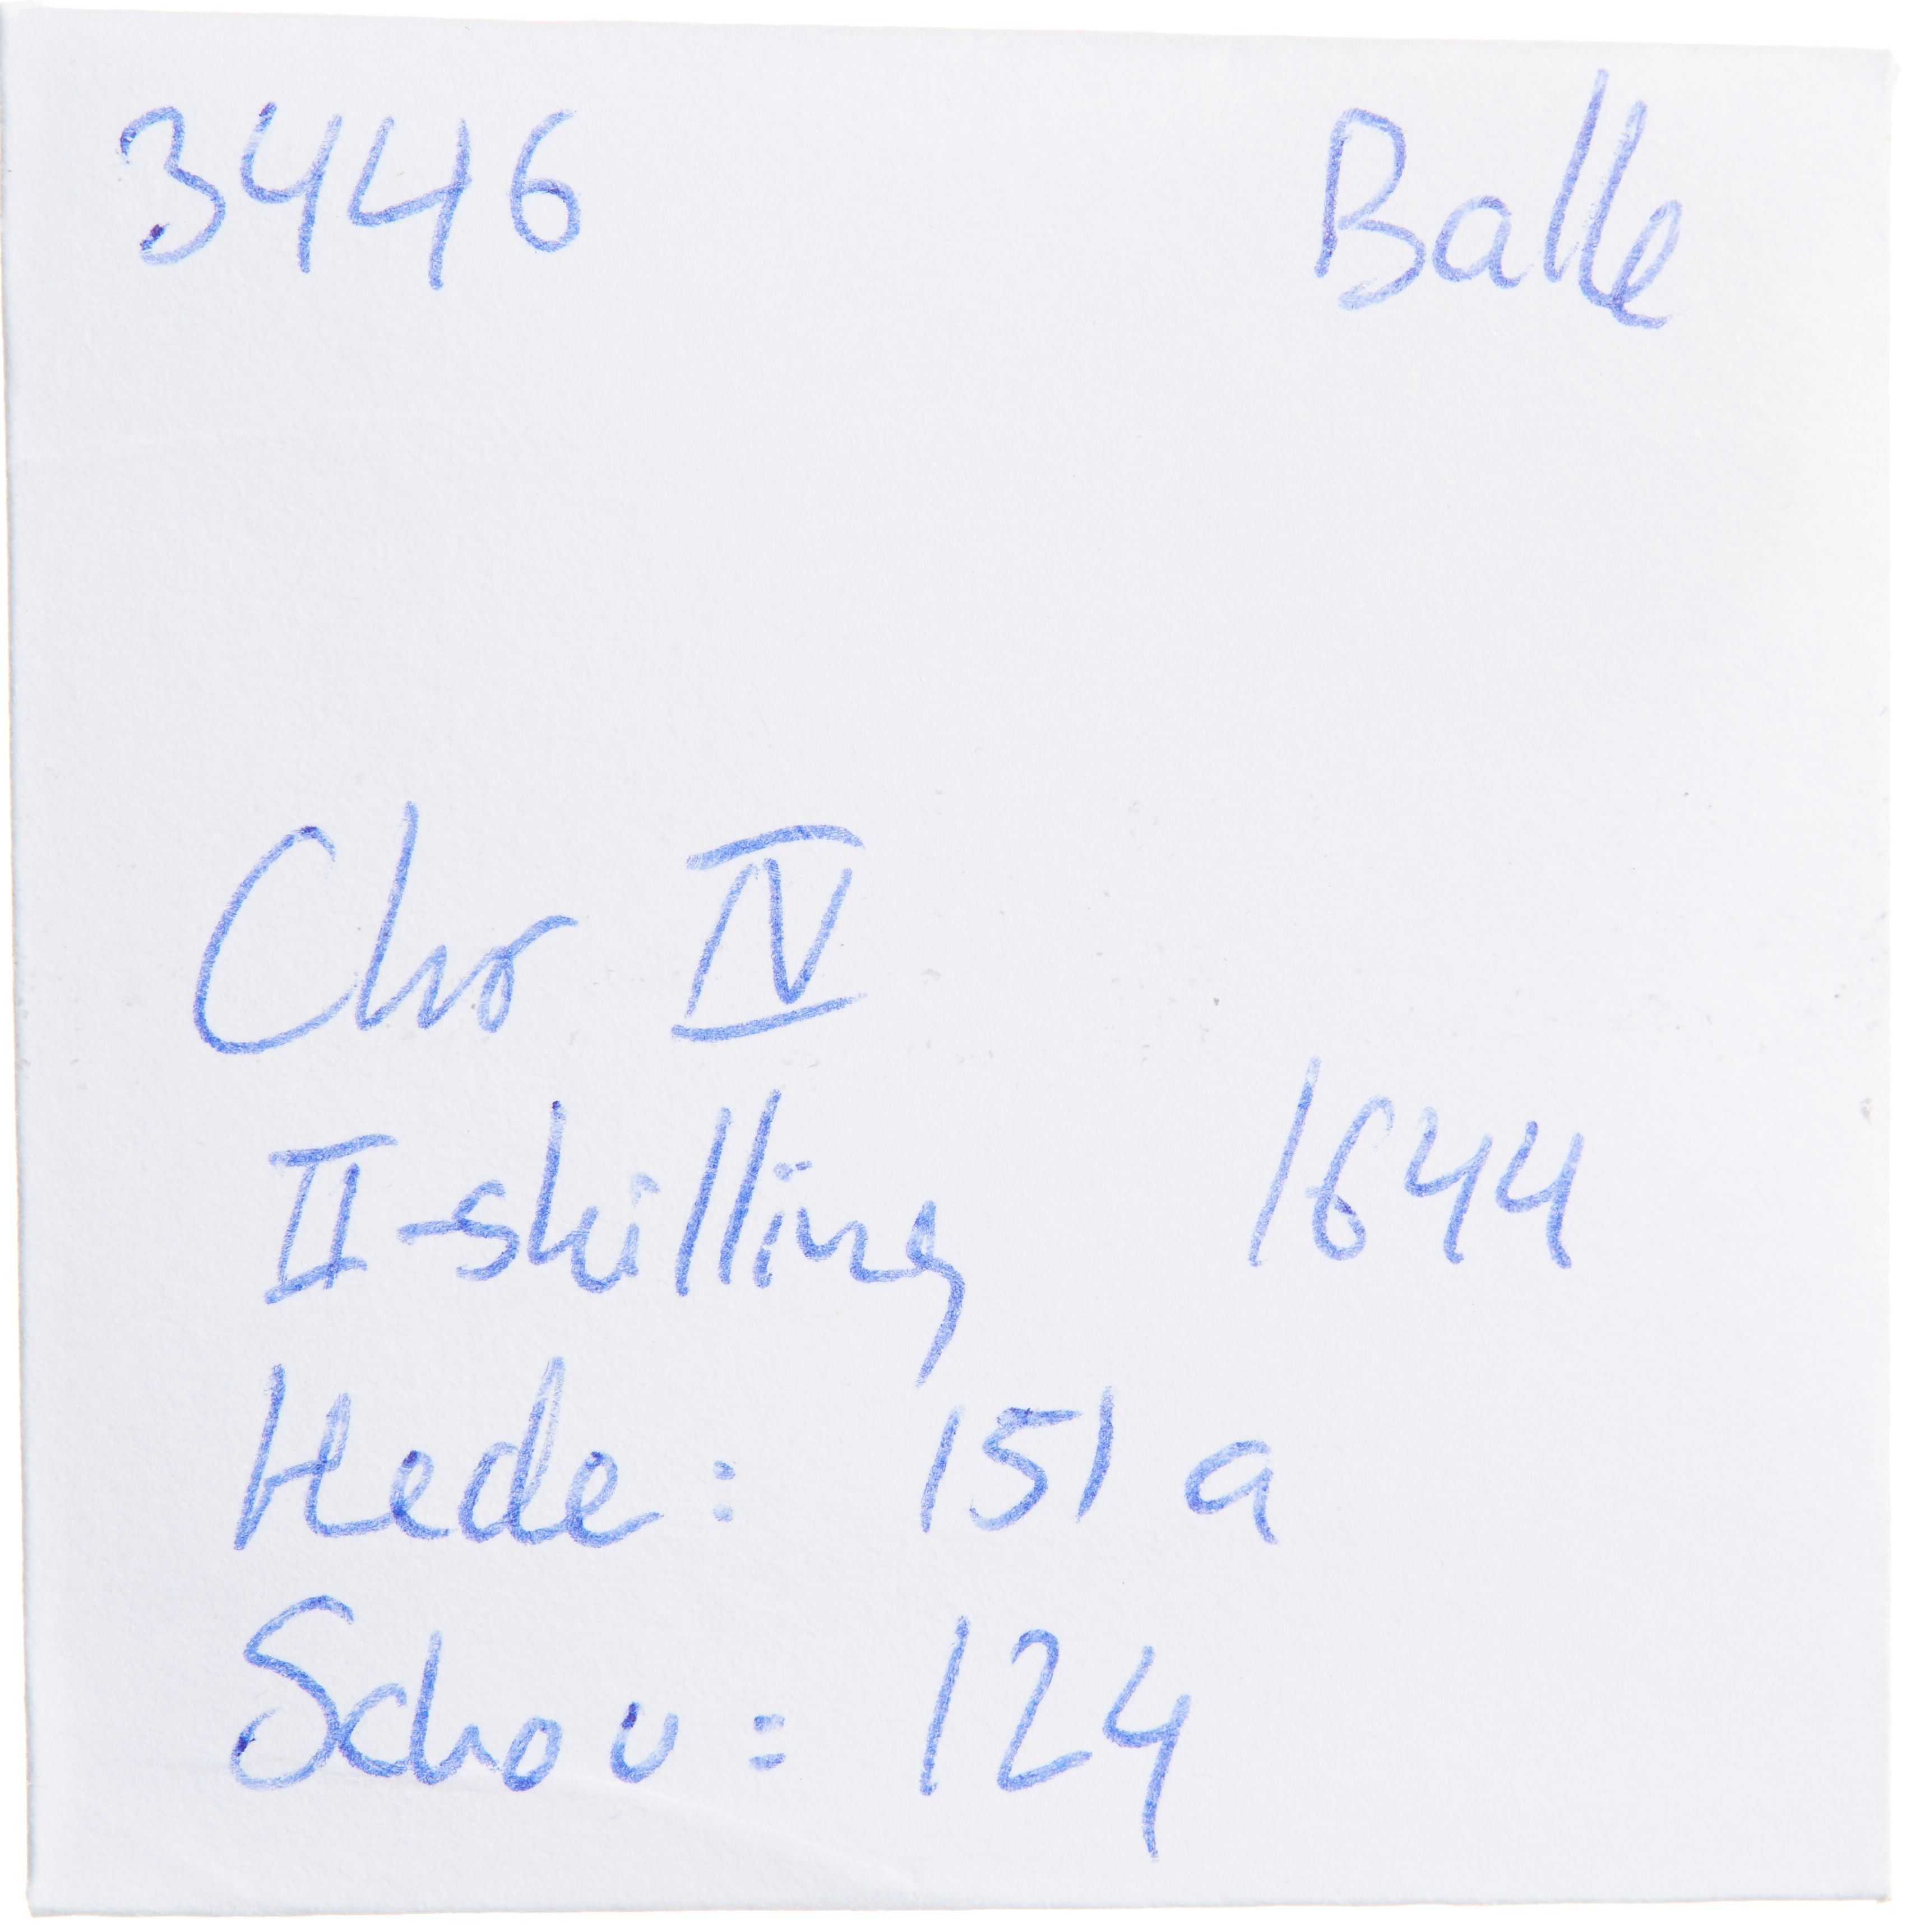 3446 Balle
Chr IV
II-skilling 1644
Hede: 151 a
Schou: 124